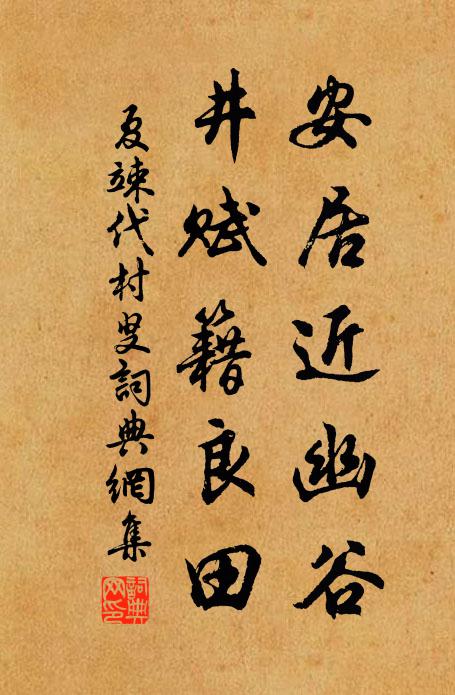 安居近幽谷
井賦籍良田
夏竦代村叟詞典網集
詞典網印